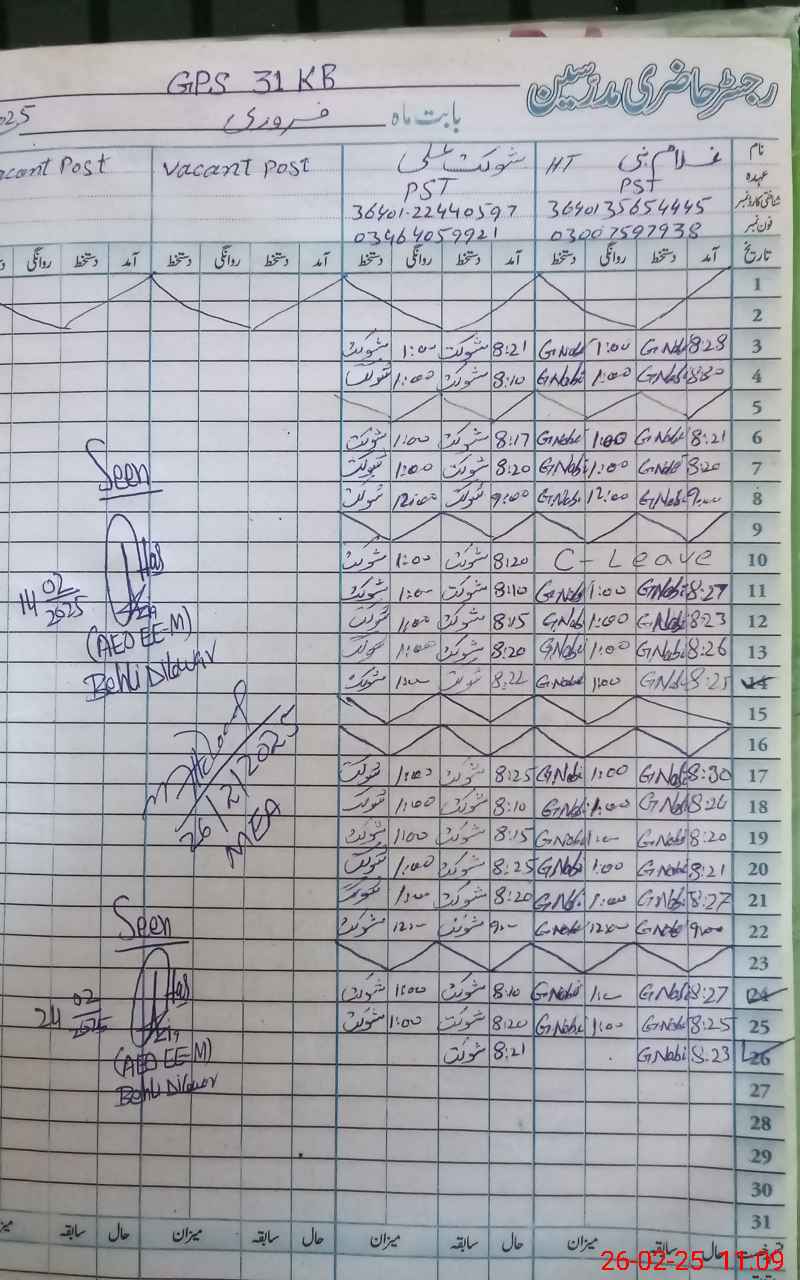 رجسٹر حاضری مدرسین
GPS 31 KB
بابت ماہ فروری
نام غلام نبی HT شوکت علی Vacant Post
عہدہ PST PST
شناختی کارڈ نمبر 3640135654445 36401-22440597
فون نمبر 03007597938 03464059921
تاریخ آمد دستخط روانگی دستخط آمد دستخط روانگی دستخط آمد دستخط روانگی دستخط آمد دستخط روانگی
1
2
3 8:28 GNabi 1:00 GNabi 8:21 شوکت 1:00 شوکت
4 GNabi 1:00 GNabi 8:10 شوکت 1:00 شوکت
5
6 8:21 GNabi 1:00 GNabi 8:17 شوکت 1:00 شوکت
7 8:20 GNabi 1:00 GNabi 8:20 شوکت 1:00 شوکت
8 9:00 GNabi 12:00 GNabi 9:00 شوکت 12:00 شوکت
9
10 C-Leave 8:20 شوکت 1:00 شوکت
11 8:27 GNabi 1:00 GNabi 8:10 شوکت 1:00 شوکت
12 8:23 GNabi 1:00 GNabi 8:15 شوکت 1:00 شوکت
13 8:26 GNabi 1:00 GNabi 8:20 شوکت 1:00 شوکت
14 8:25 GNabi 1:00 GNabi 8:22 شوکت 1:00 شوکت
15
16
17 8:30 GNabi 1:00 GNabi 8:25 شوکت 1:00 شوکت
18 GNabi 1:00 GNabi 8:10 شوکت 1:00 شوکت
19 8:20 GNabi 1:00 GNabi 8:15 شوکت 1:00 شوکت
20 8:21 GNabi 1:00 GNabi 8:25 شوکت 1:00 شوکت
21 8:27 GNabi 1:00 GNabi 8:20 شوکت 1:00 شوکت
22 9:00 GNabi 12:00 GNabi 9:00 شوکت 12:00 شوکت
23
24 8:27 GNabi 1:00 GNabi 8:10 شوکت 1:00 شوکت
25 8:25 GNabi 1:00 GNabi 8:20 شوکت 1:00 شوکت
26 8:23 GNabi 8:21 شوکت
27
28
29
30
31
حال سابقہ میزان حال سابقہ میزان حال سابقہ میزان حال سابقہ
Seen
14 02
2025
(AEO EE-M)
Behli Dilawar
26/2/2025
MEA
Seen
24 02
2025
(AEO EE-M)
Behli Dilawar
26-02-25 11:09